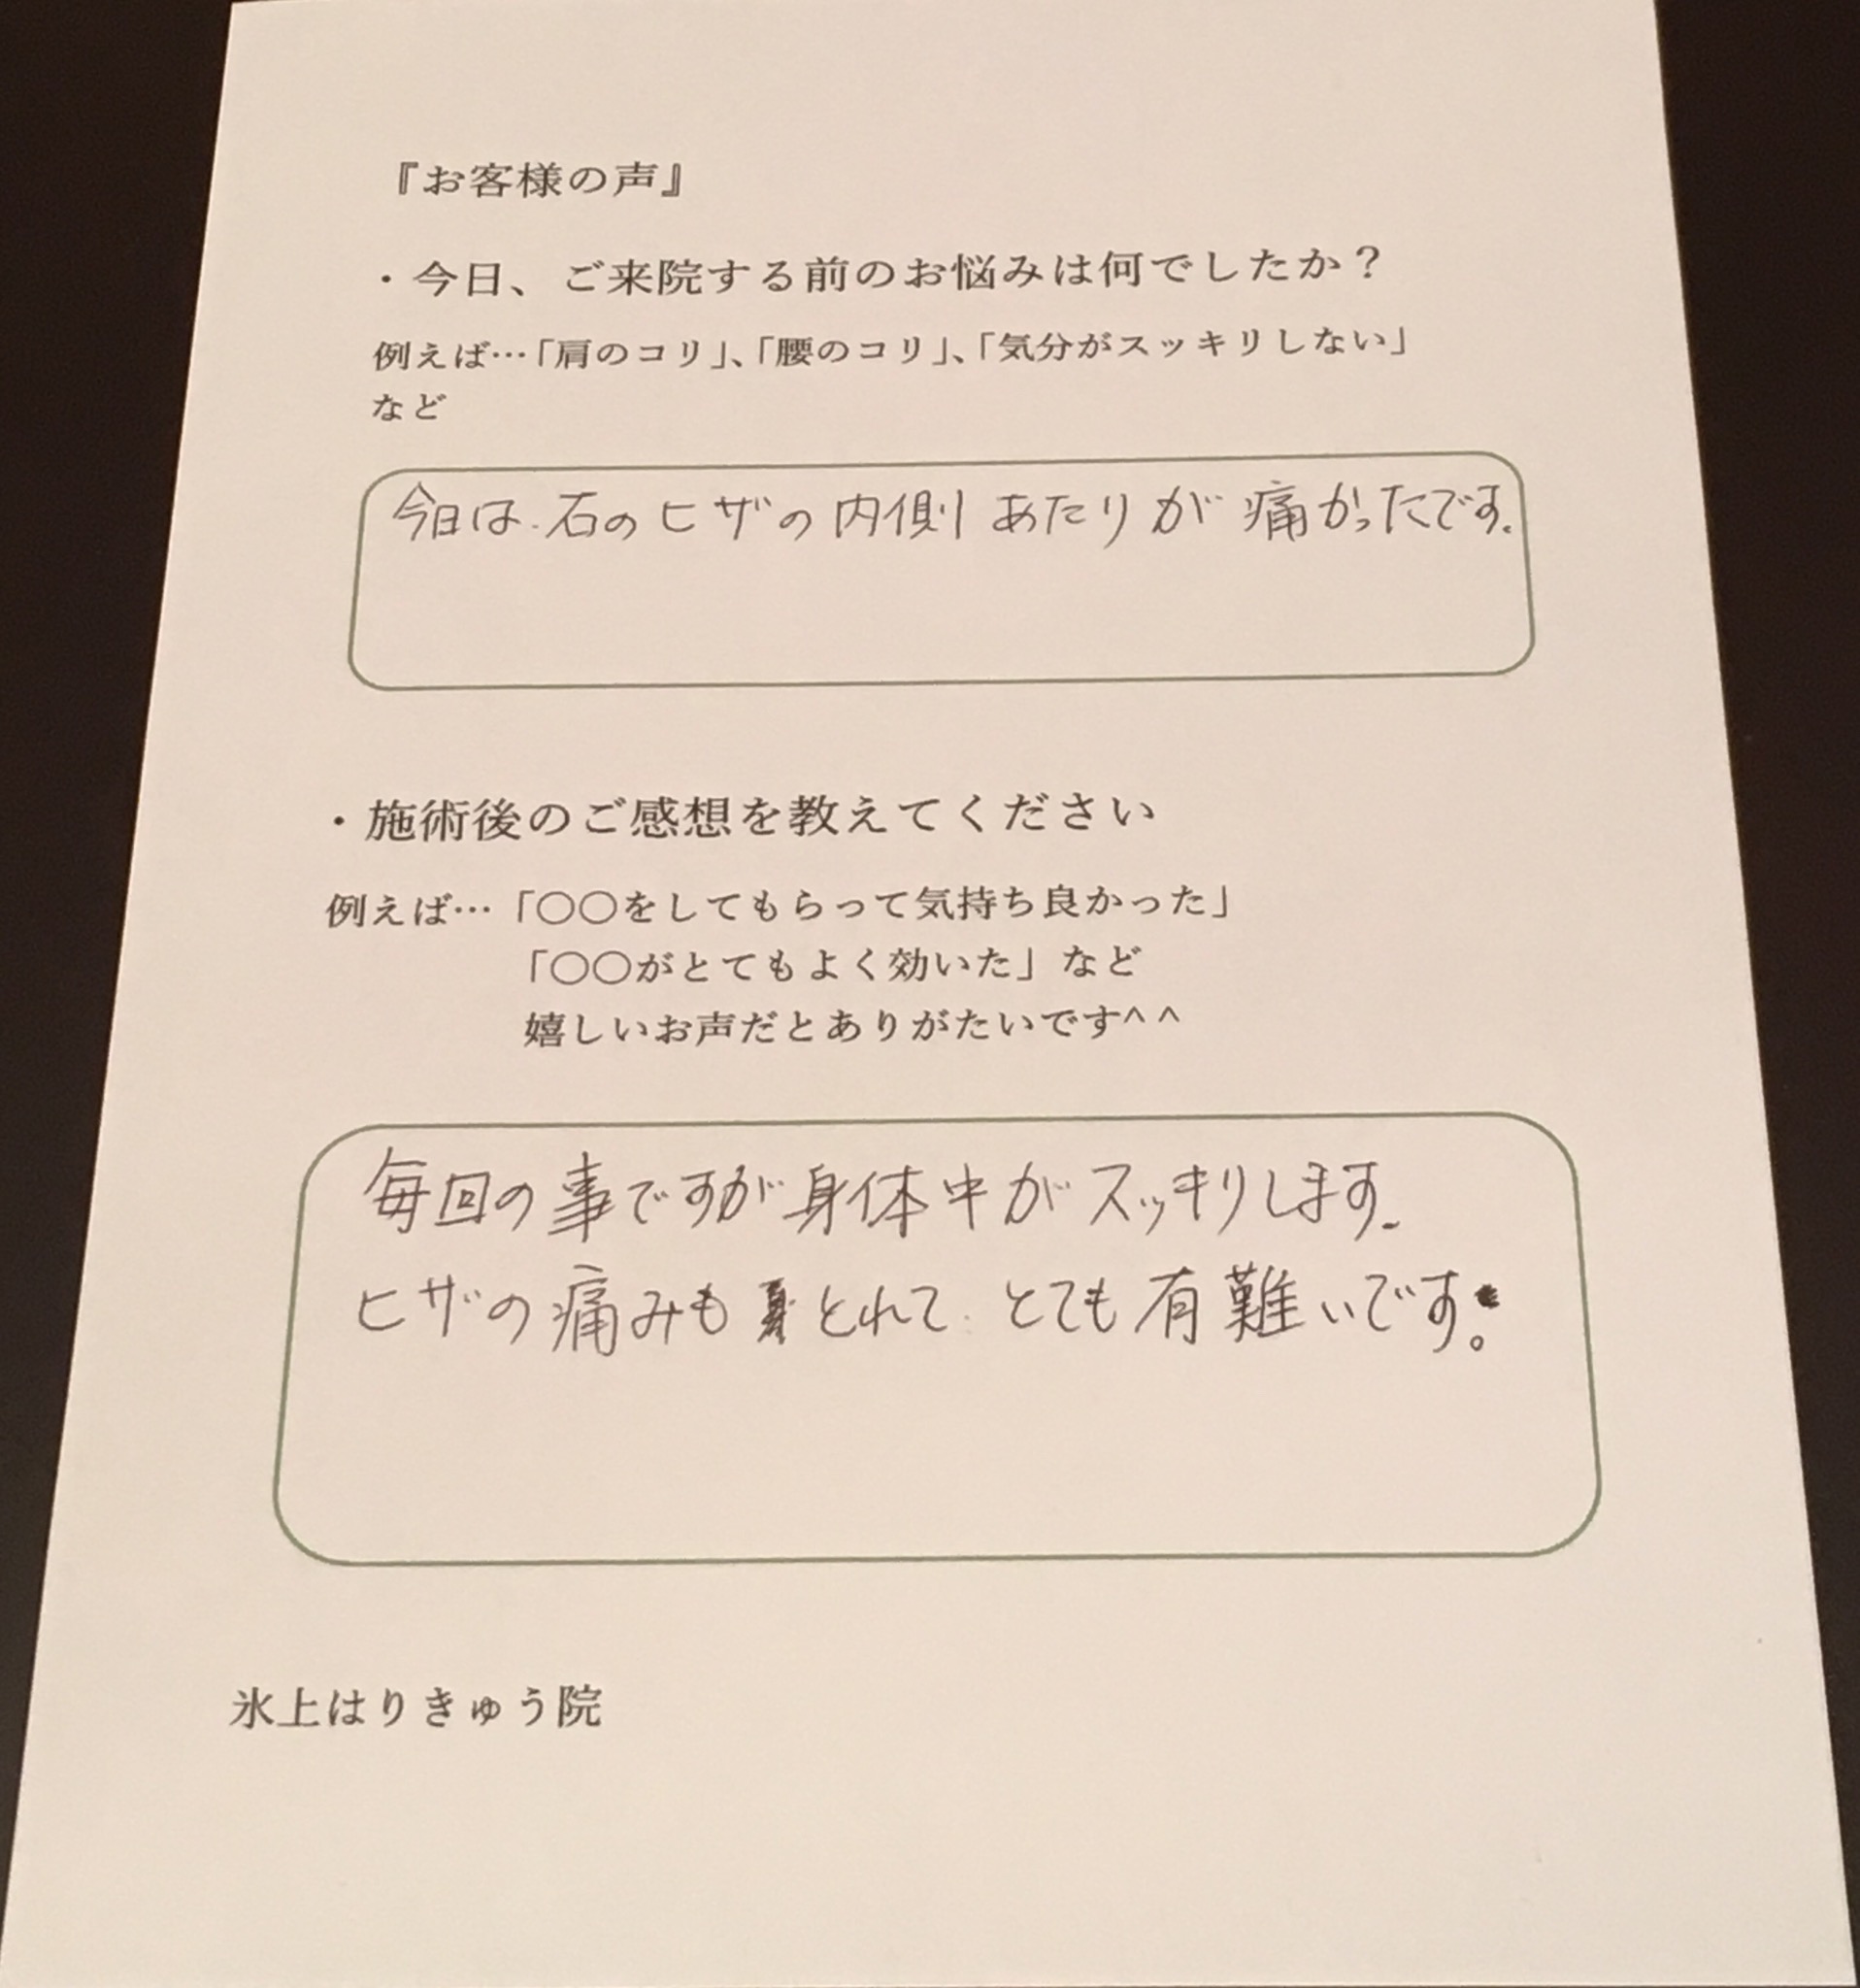 『お客様の声』
・今日、ご来院する前のお悩みは何でしたか？
例えば…「肩のコリ」、「腰のコリ」、「気分がスッキリしない」
など
今日は、石のヒザの内側あたりが痛かったです。
・施術後のご感想を教えてください
例えば…「〇〇をしてもらって気持ち良かった」
「〇〇がとてもよく効いた」など
嬉しいお声だとありがたいです^ ^
毎回の事ですが身体中がスッキリします。
ヒザの痛みもとれて、とても有難いです。
氷上はりきゅう院